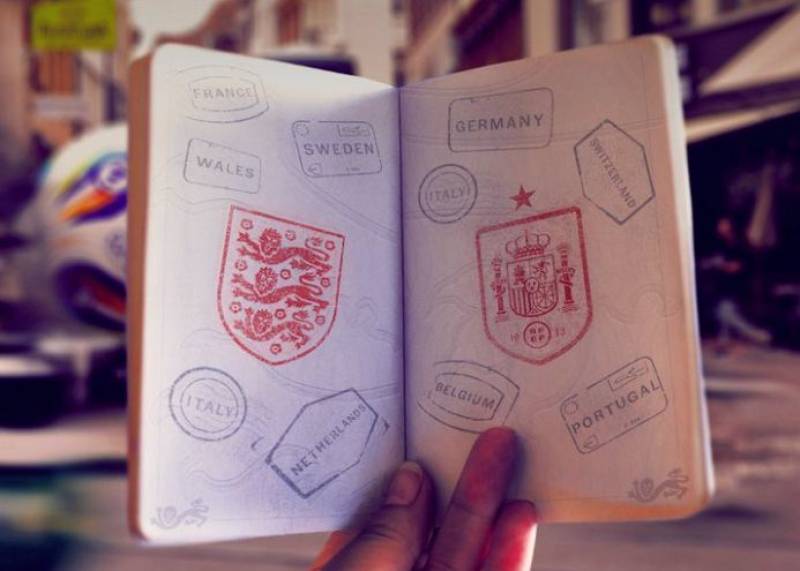 FRANCE
SWEDEN
WALES
ITALY
NETHERLANDS
GERMANY
SWITZERLAND
ITALY
BELGIUM
PORTUGAL